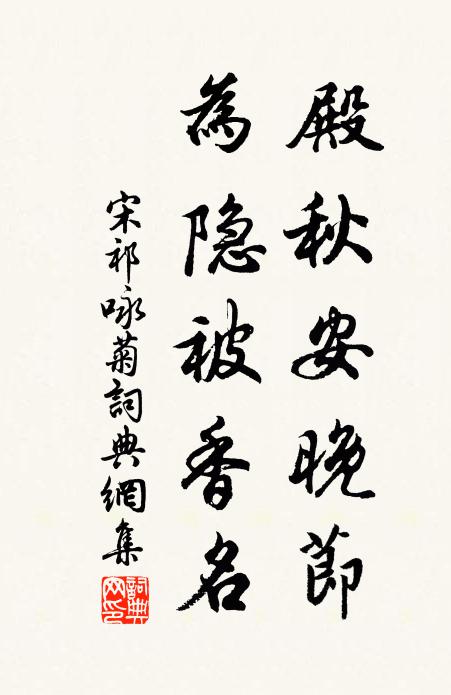 殿秋安晚節
為隐被香名
宋祁咏菊詞典網集
詞典网印